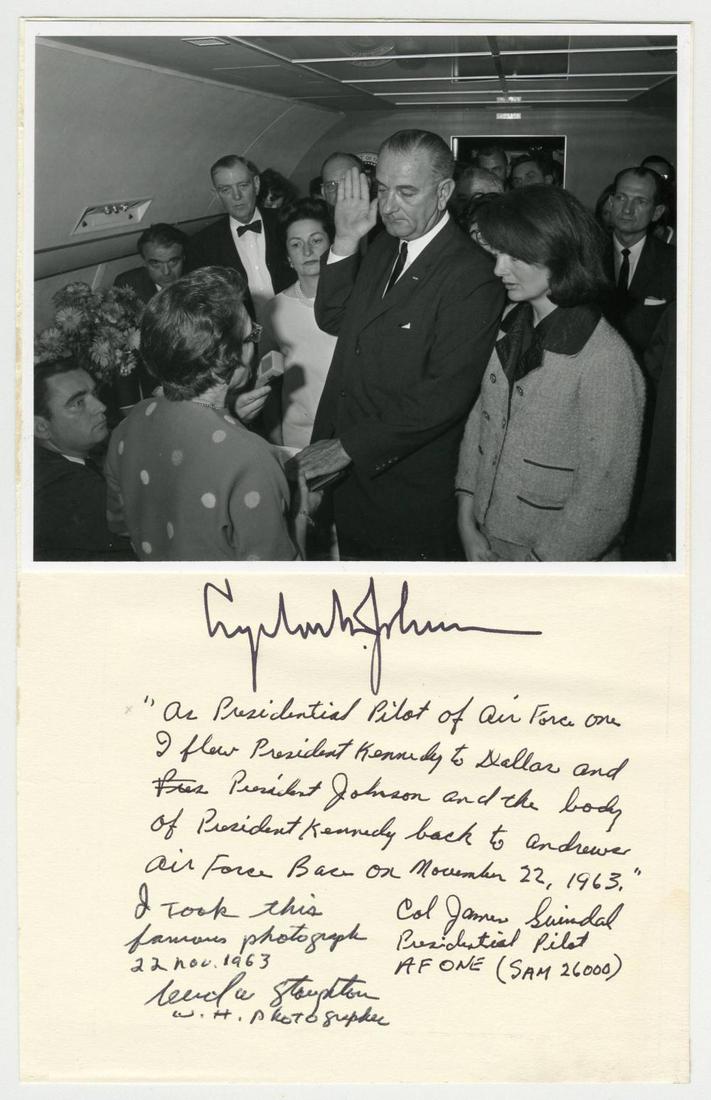 Lyndon B. Johnson
" As Presidential Pilot of Air Force one
I flew President Kennedy to Dallas and
Pres President Johnson and the body
of President Kennedy back to Andrews
Air Force Base on November 22, 1963."
I took this
famous photograph
22 Nov. 1963
Cecil W. Stoughton
W. H. Photographer
Col James Swindal
Presidential Pilot
AF ONE (SAM 26000)